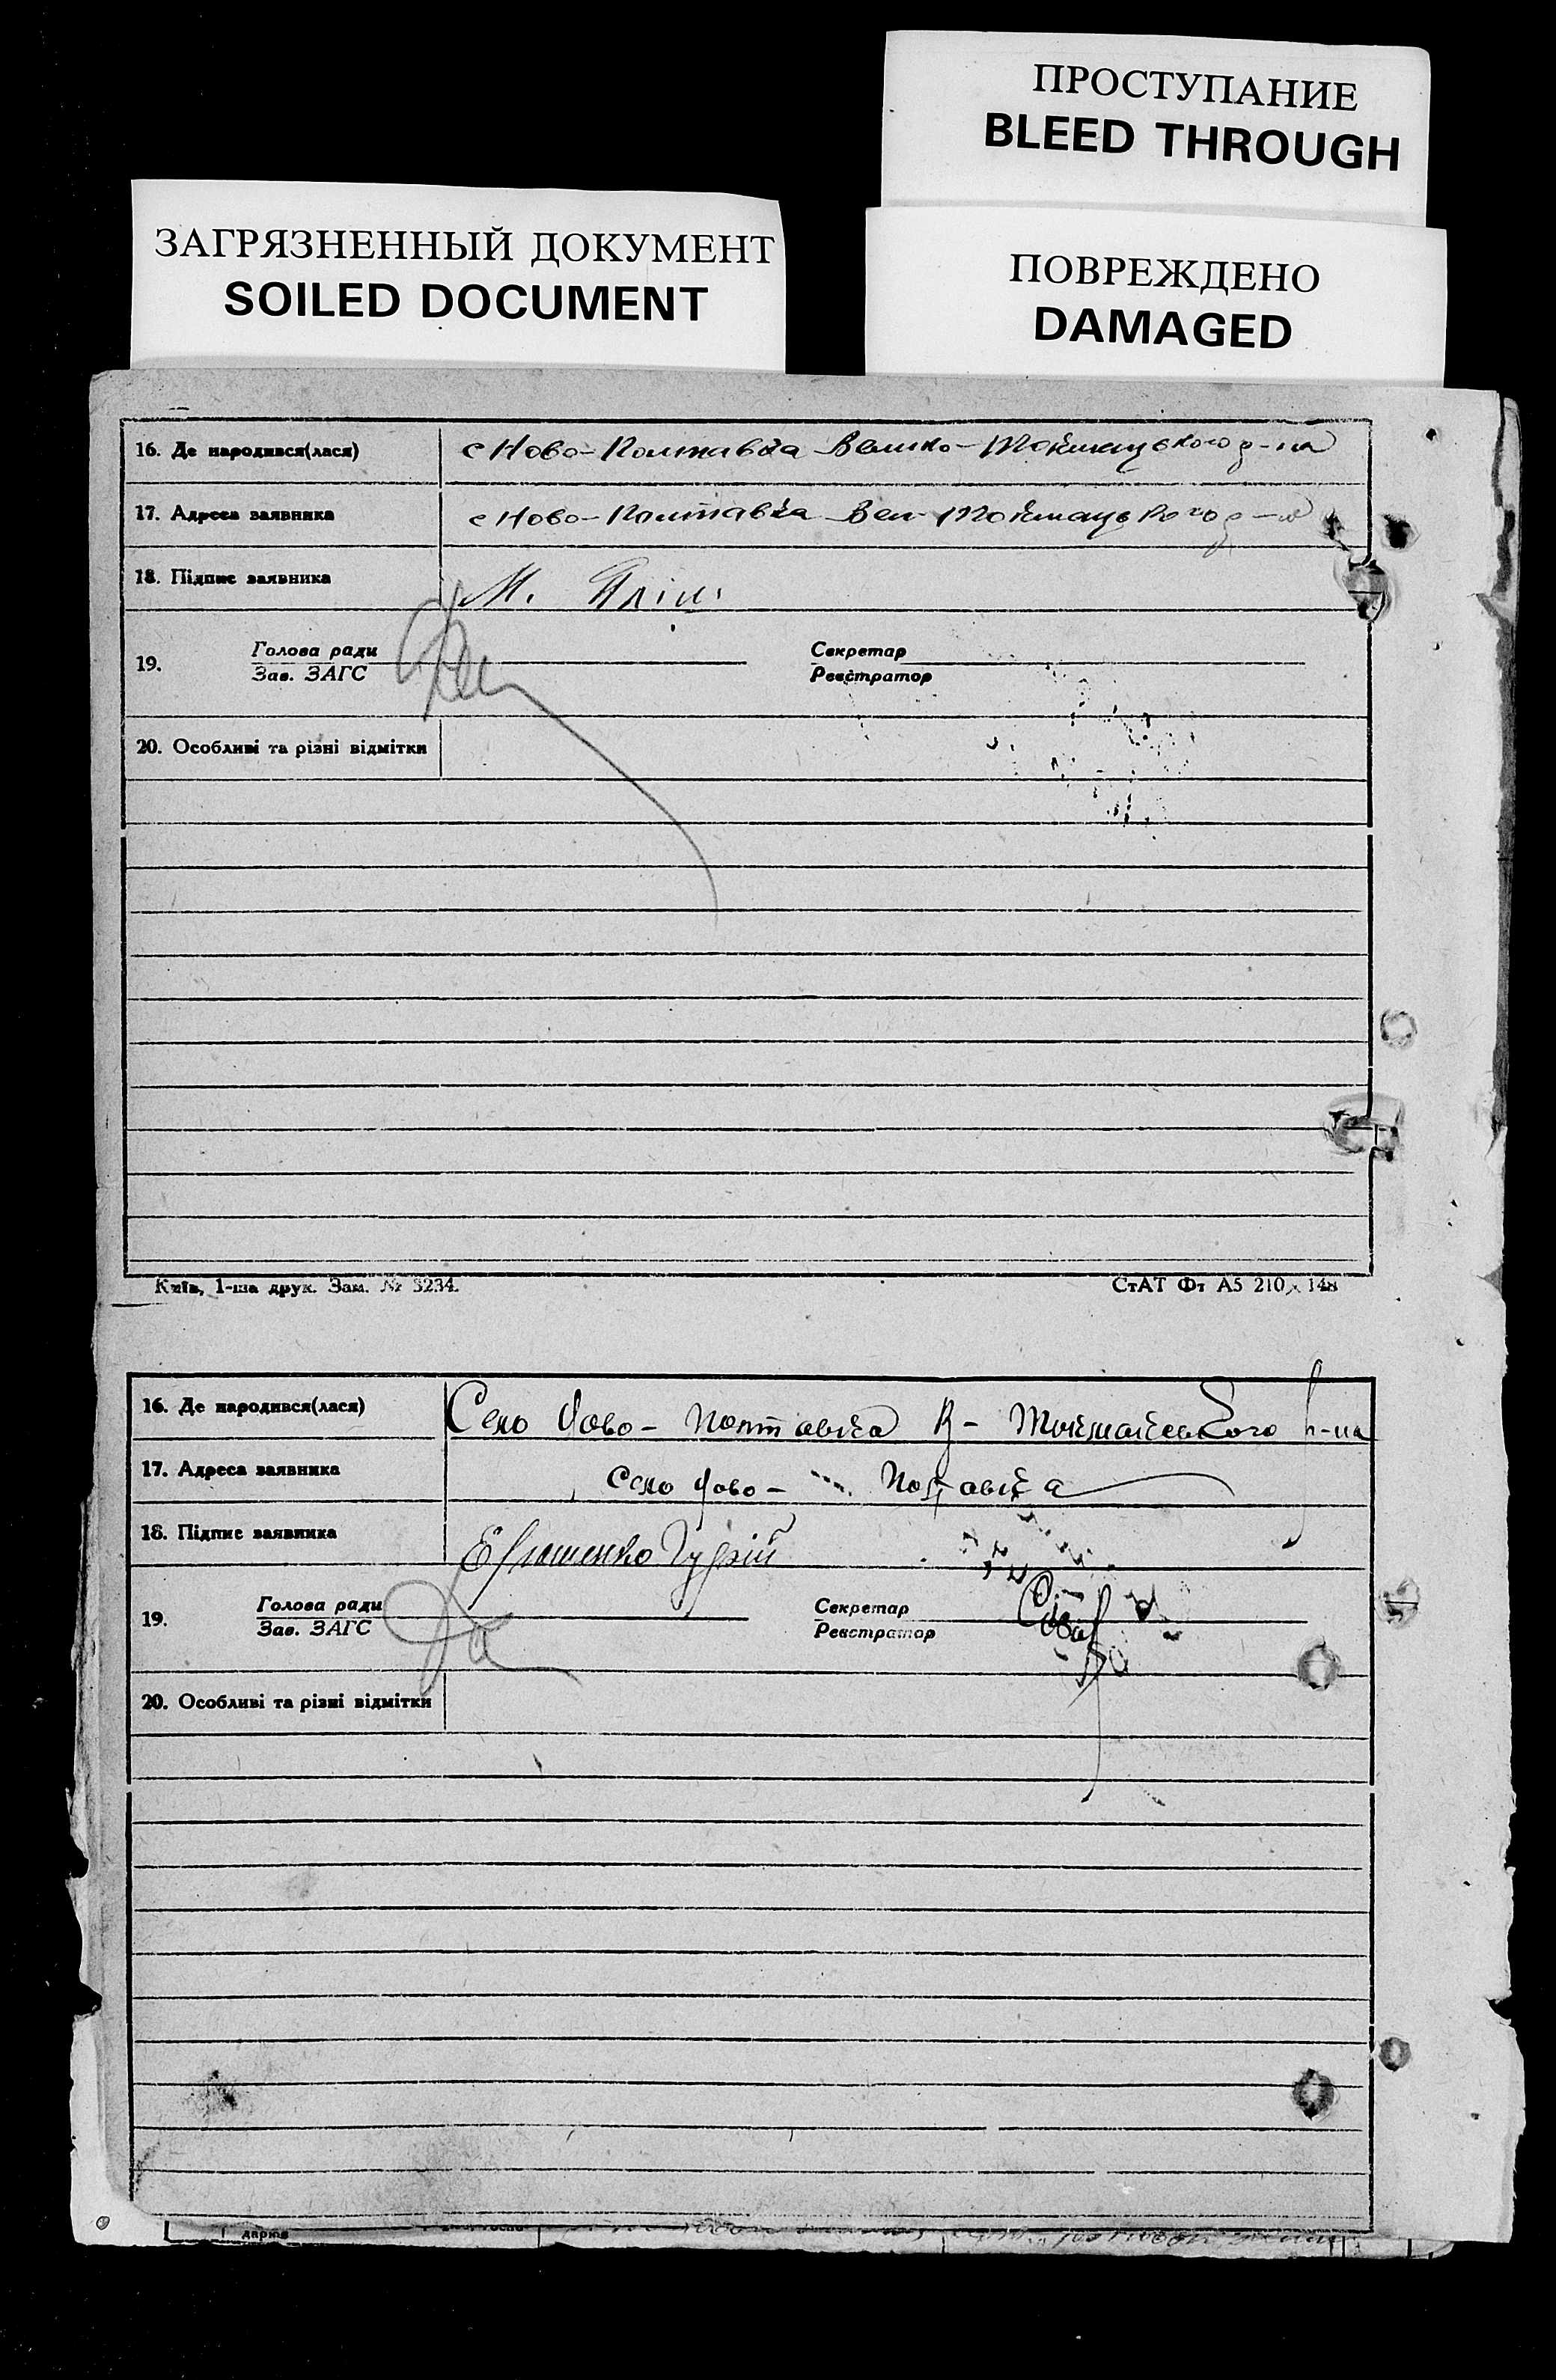 ПРОСТУПАНИЕ
BLEED THROUGH
ЗАГРЯЗНЕННЫЙ ДОКУМЕНТ
SOILED DOCUMENT
ПОВРЕЖДЕНО
DAMAGED
16. Де народився(лася) с Ново-Полтавка Велико-Токмацького р-на
17. Адреса заявника с Ново-Полтавка Вел-Токмацького р-н
18. Підпис заявника М.
19. Голова ради Секретар
Зав. ЗАГС Реєстратор
20. Особливі та різні відмітки
Київ, 1-ша друк. Зам. № 3234. СтАТ Фт А5 210×148
16. Де народився(лася) Село Ново- Полтавка В- Токмакського р-на
17. Адреса заявника Село Ново- Полтавка
18. Підпис заявника
19. Голова ради Секретар
Зав. ЗАГС Реєстратор
20. Особливі та різні відмітки